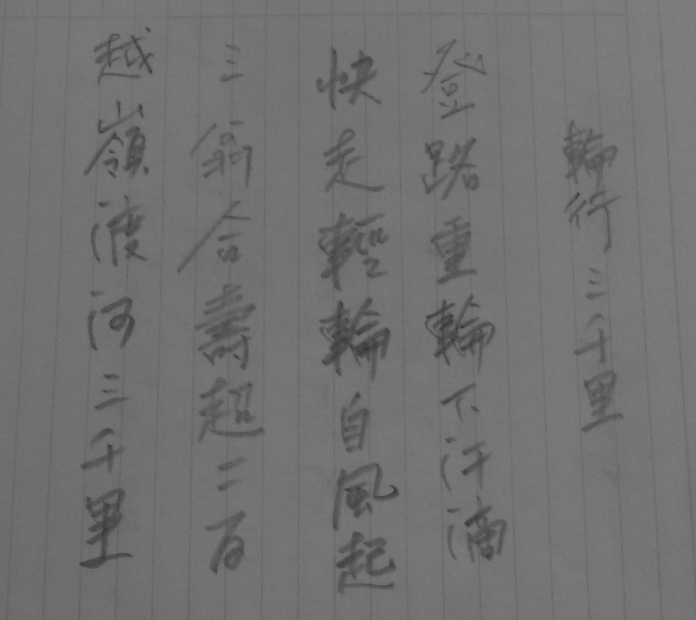 輪行三千里
登路重輪下汗滴
快走輕輪自風起
三翁合壽超二百
越嶺渡河三千里